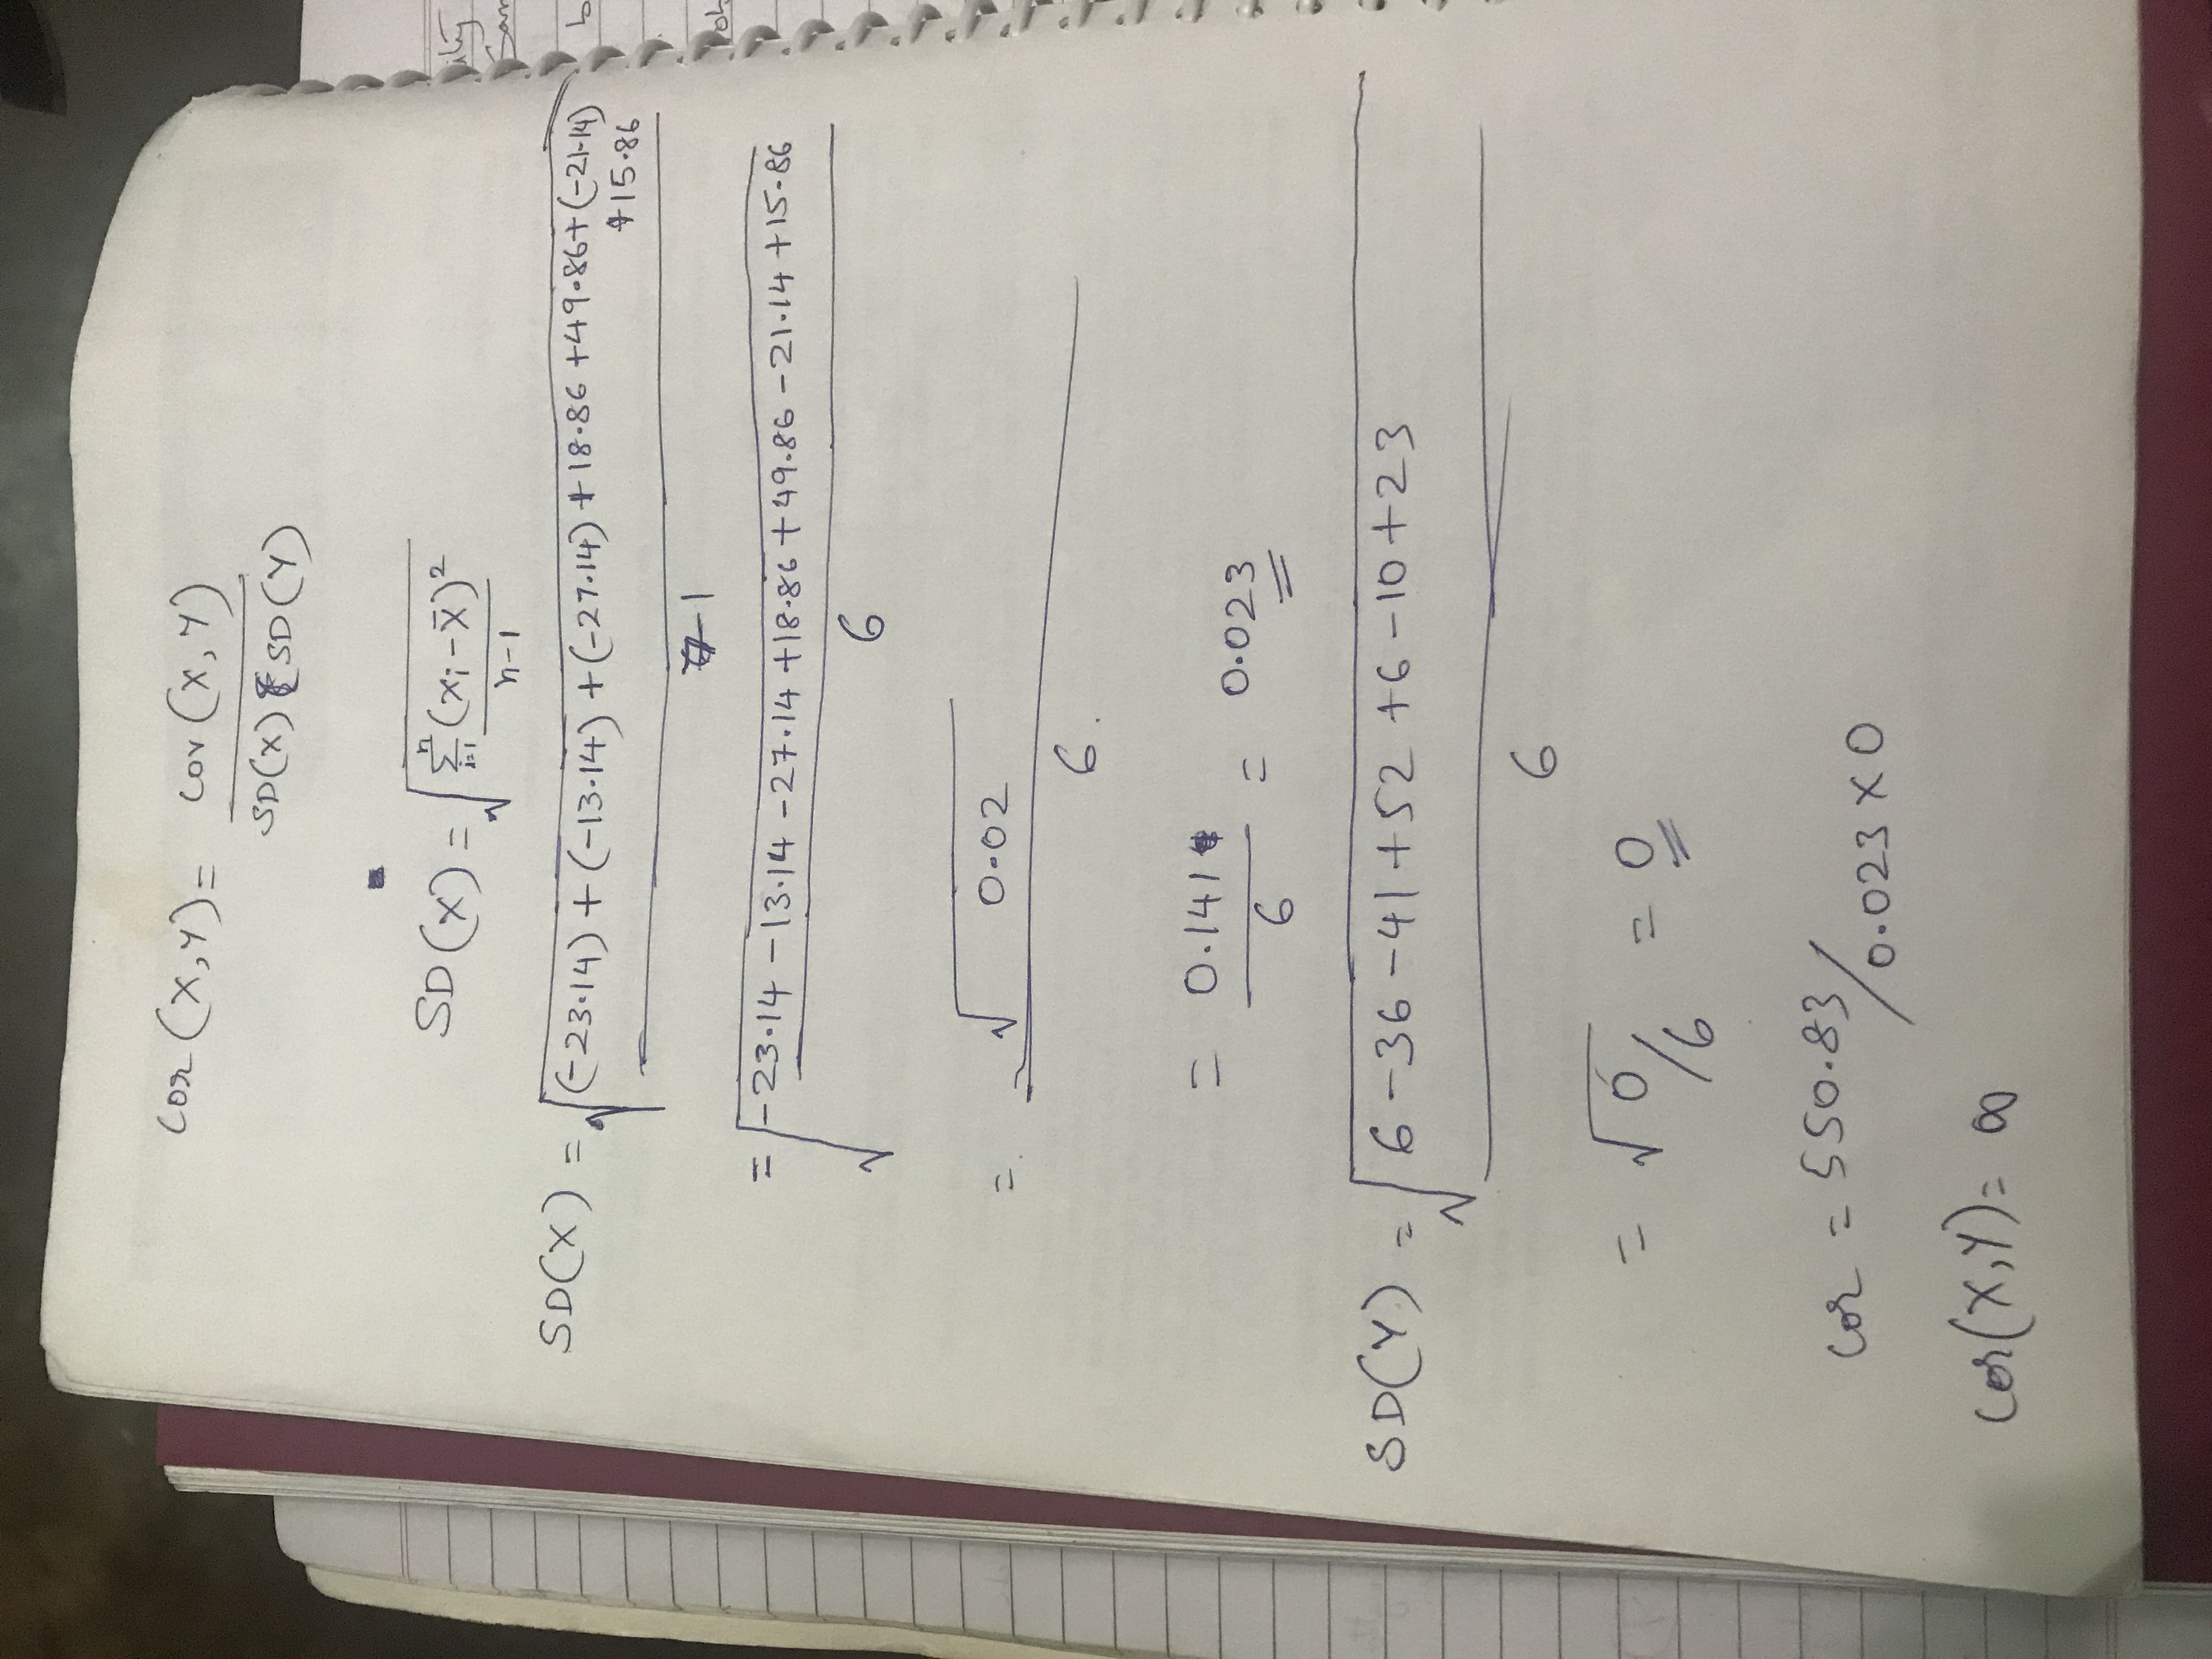 Cor (X,Y) = Cov (X, Y) / SD(X) SD(Y)
SD (X) = √ Σ_{i=1}^{n} (x_i - x̄)² / n-1
SD(X) = √ (-23.14) + (-13.14) + (-27.14) + 18.86 + 49.86 + (-21.14)
+15.86
7-1
= √ -23.14 -13.14 -27.14 +18.86 +49.86 -21.14 +15.86
6
= √ 0.02
6.
= 0.141 / 6 = 0.023
SD(Y) = √ 6-36-41+52+6-10+23
6
= √0/6 = 0
Cor = 550.83/0.023 X 0
Cor(X,Y) = ∞
ity
Sam
b